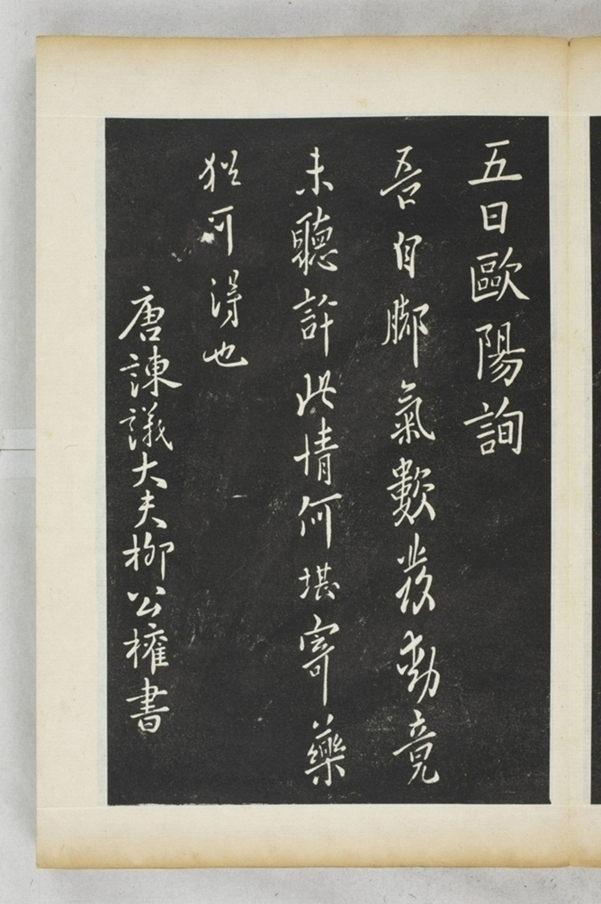 五日歐陽詢
吾自脚氣數發動竟
未聽許此情何堪寄藥
猶可得也
唐諫議大夫柳公權書